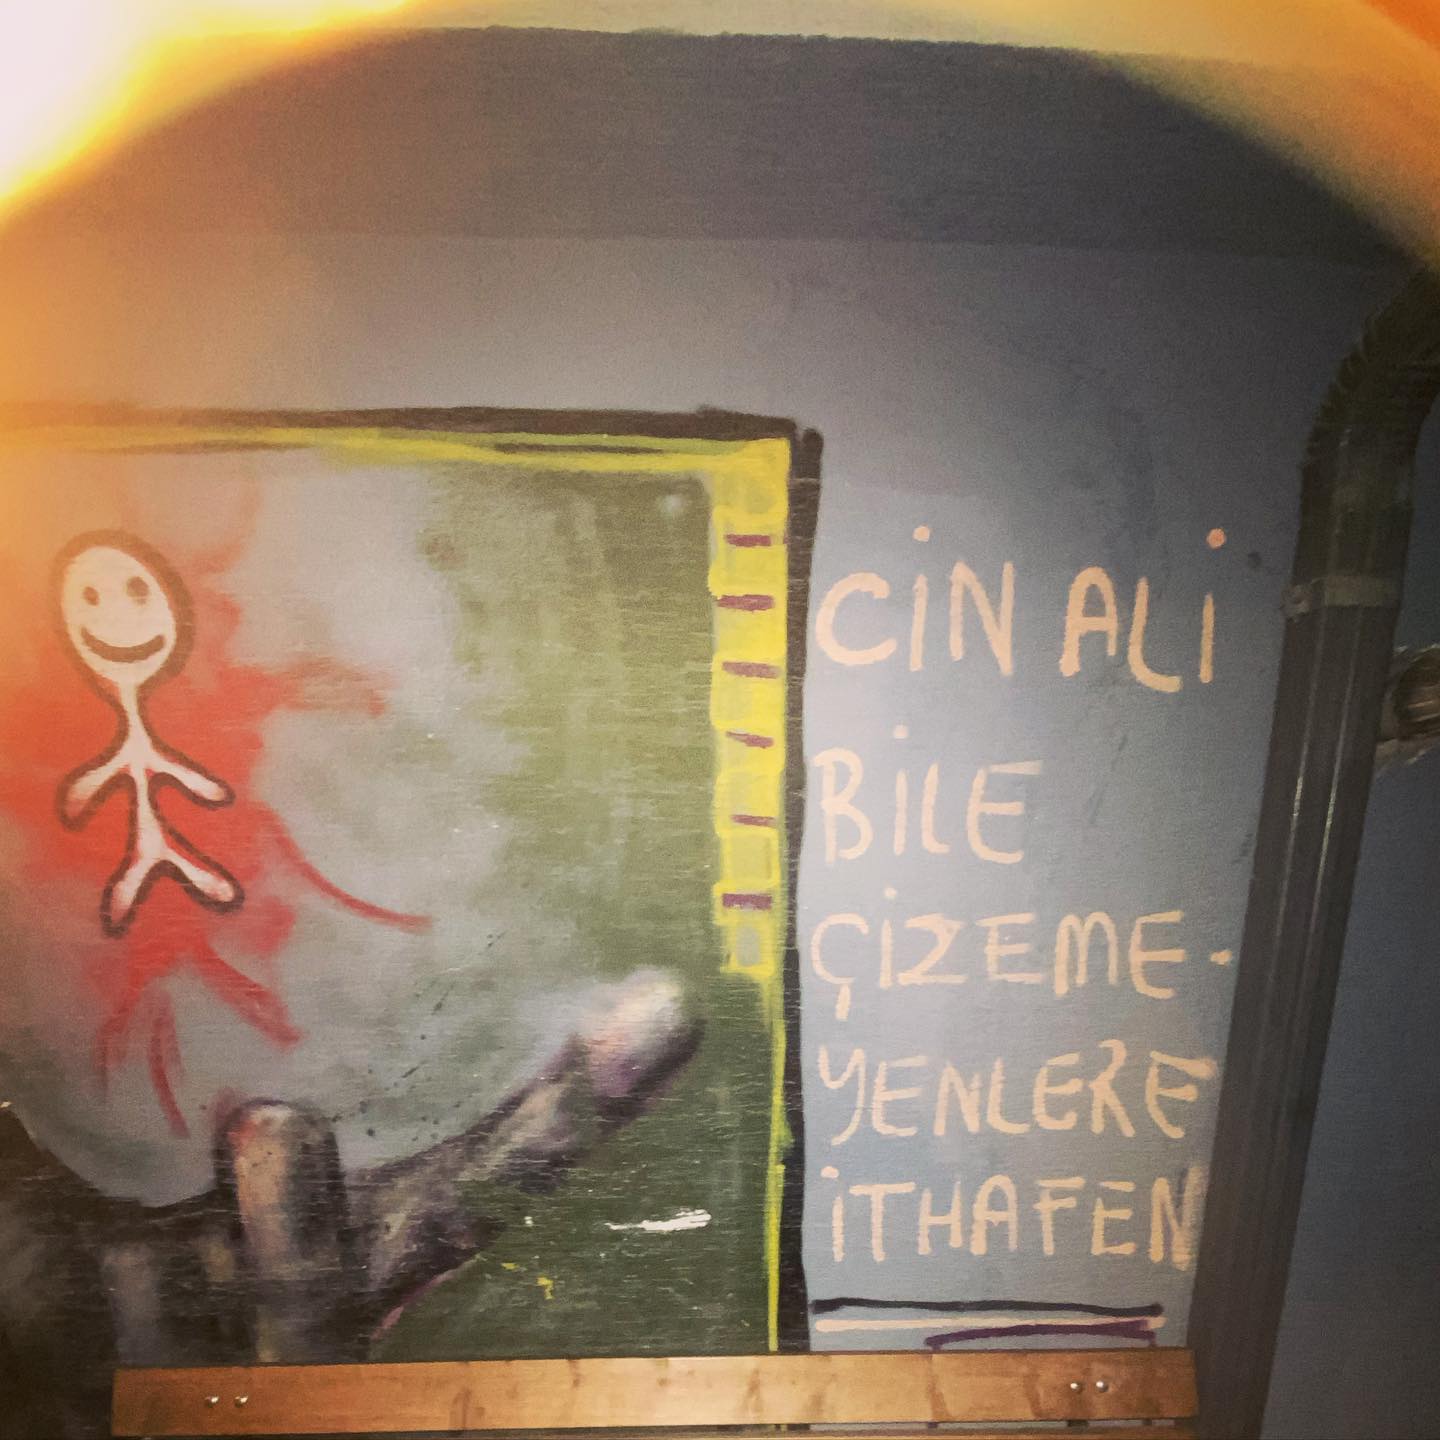 CİN ALİ
BİLE
ÇİZEME-
YENLERE
İTHAFEN